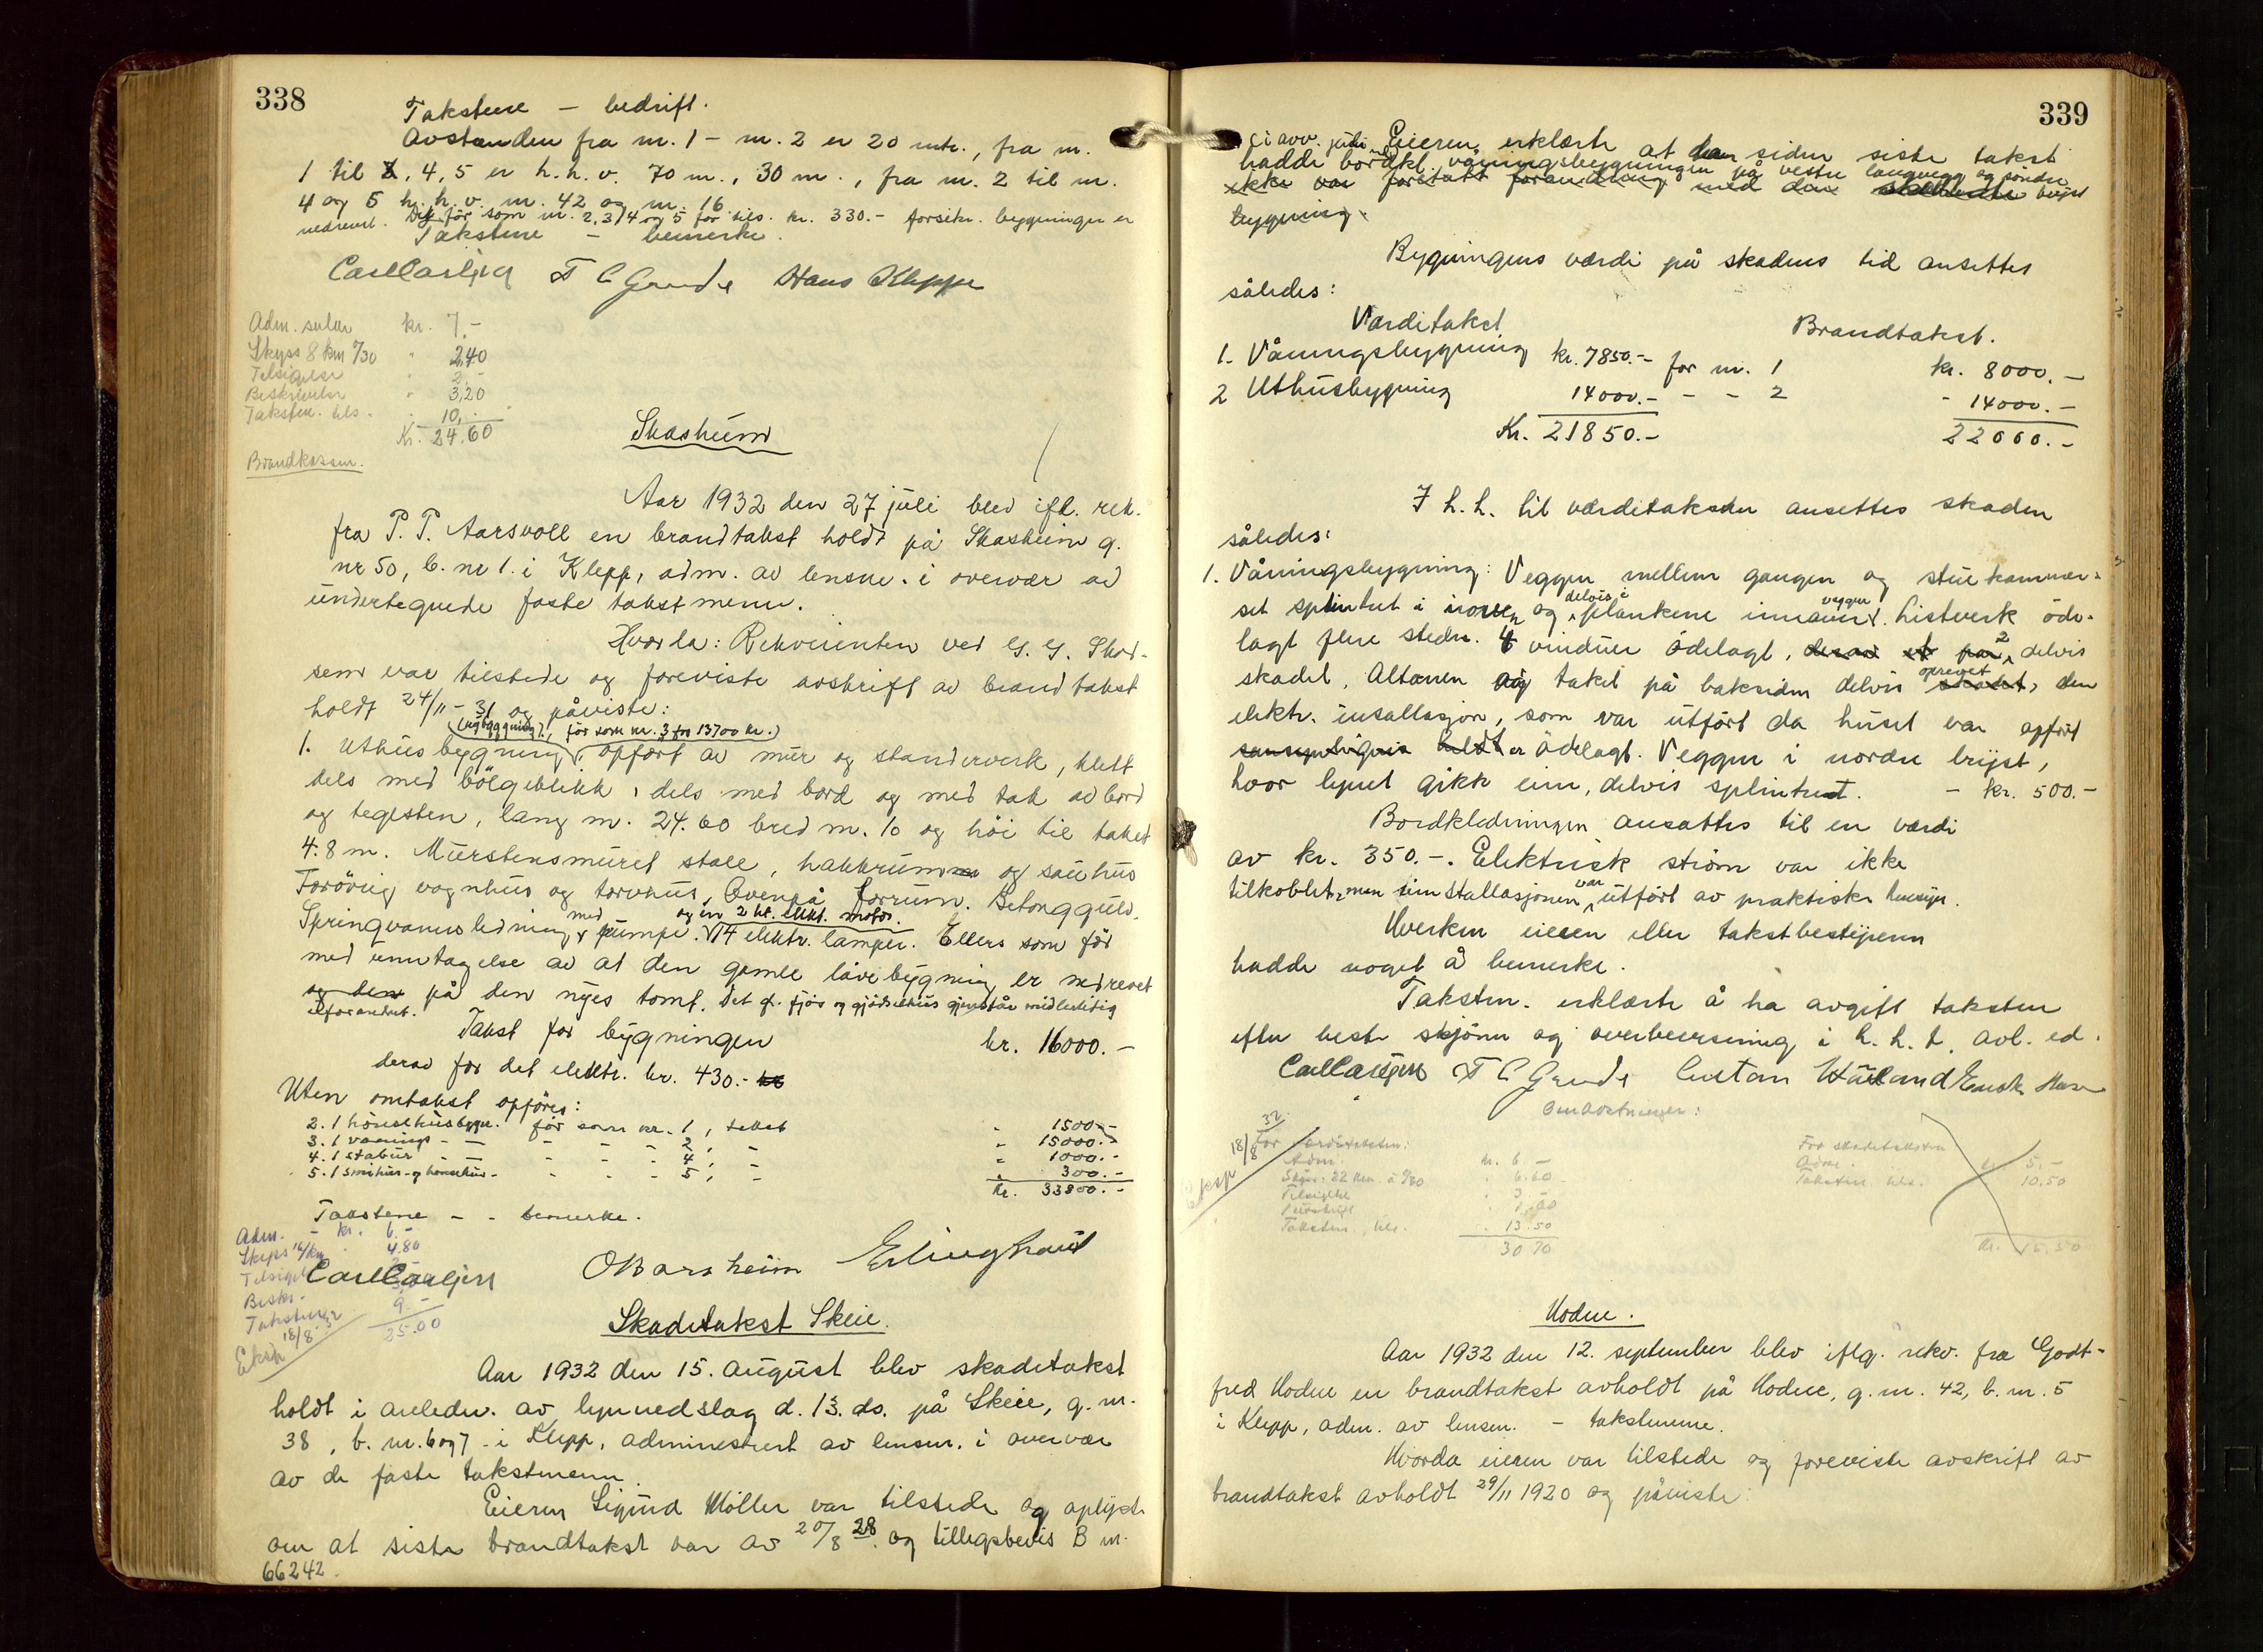 338
Takstene – bedrift.
Avstanden fra nr. 1 – nr. 2 er 20 mtr., fra nr.
1 til 2, 4, 5 er h.h.v. 70 m., 30 m., fra nr. 2 til nr.
4 og 5 h.h.v. m. 42 og m. 16
nedrevet. Det før som nr. 2, 3, 4 og 5 for tils. kr. 330.- forsikr. bygninger er
Takstene – bemerke.
Carl Carlsen T C Grude Hans Kleppe
Adm. salær kr. 7,-
Skyss 8 km a/30 " 2,40
Tilsigelse " 2,-
Beskrivelse " 3,20
Takstm. tils. - 10,-
Kr. 24.60
Brandkassen.
Skasheim
Aar 1932 den 27 juli blev ifl. rek.
fra P. T. Aarsvoll en brandtakst holdt på Skasheim g.
nr 50, b. nr 1. i Klepp, adm. av lensm. i overvær av
undertegnede faste takstmenn.
Hvorda: Rekvirenten ved G. G. Skad-
sem var tilstede og foreviste avskrift av brandtakst
holdt 24/11 - 31 og påviste:
(nybygning), før som nr. 3 for 13700 kr.)
1. Uthusbygning, opført av mur og standerverk, klett
dels med bölgeblikk, dels med bord og med tak av bord
og teglsten, lang m. 24.60 bred m. 10 og höi til taket
4.8 m. Murstensmuret stall, hakkrum og sauhus
Forövrig vognhus og torvhus, Ovenpå forrum. Betonggulv.
med og en 2 hk. elekt. motor.
Springvannsledning, pumpe. 14 elektr. lamper. Ellers som för
med unntagelse av at den gamle låvebygning er nedrevet
og den på den nyes tomt. Det gl. fjös og gjödselhus gjenstår midlertidig
uforandret.
Takst for bygningen kr. 16000.-
derav for det elektr. kr. 430.-
Uten omtakst opföres:
2. 1 hönsehusbygn. för som nr. 1, takst " 1500.-
3. 1 vånings - - - - - 2, - " 15000.-
4. 1 stabur - - - - - 4, - " 1000.-
5. 1 smihus- og hönsehus - - - - 5, - " 300.-
Kr. 33800.-
Takstene - - bemerke.
Adm. - kr. 6.-
Skyss 16/km 4.80
Tilsigel
Beskr.
Takstmenn 9.-
35.00
Eksp 18/8 32
Carl Carlsen O Borsheim Erling Haus
Skadetakst Skeie.
Aar 1932 den 15. august blev skadetakst
holdt i anledn. av lynnedslag d. 13. ds. på Skeie, g. nr.
38, b. nr. 6 og 7 i Klepp, administrert av lensm. i overvær
av de faste takstmenn.
Eieren Sigurd Möller var tilstede og oplyste
om at siste brandtakst var av 20/8 28. og tilleggsbevis B nr.
66242.
339
(i avv. juli Eieren erklærte at han siden siste takst
hadde bordkl. våningsbygningen på vestre langvegg og söndre
ikke var foretatt forandring med den skadede brijst
bygning.
Bygningens værdi på skadens tid ansettes
således:
Værditakst Brandtakst.
1. Våningsbygning kr. 7850.- for nr. 1 kr. 8000.-
2 Uthusbygning 14000.- - - 2 - 14000.-
Kr. 21850.- 22000.-
I h.h. til værditaksten ansettes skaden
således:
1. Våningsbygning: Veggen mellem gangen og stuekammer-
delvis i vegger
set splintret i noven og plankene innover. Listverk öde-
lagt flere steder. 4 vinduer ödelagt, derav et par 2 delvis
oprevet
skadet, Altanen og taket på baksiden delvis skadet, den
elektr. insallasjon, som var utfört da huset var opfört
sannsynligvis helt er ödelagt. Veggen i nordre brijst,
hvor lynet gikk inn, delvis splintret. - kr. 500.-
Bordkledningen ansattes til en værdi
av kr. 350.-. Elektrisk ström var ikke
tilkoblet, men innstallasjonen var utfört av praktiske hensyn.
Hverken eieren eller takstbestyreren
hadde noget å bemerke.
Takstm. erklærte å ha avgitt taksten
efter beste skjönn og overbevisning i h.h.t. avl. ed.
Carl Carlsen T C Grude Gustav Häiland
Omkostninger:
Eksp 18/8 32
For værditaksten:
Adm. kr. 6.-
Skyss: 22 km. à 0/30 " 6.60
Tilsigelse " 3.-
Takstm. tils. " 13.50
30 70
For skadetaksten
Adm. kr. 5.-
Takstm. tils. 10.50
Kr. 15.50
Hodne.
Aar 1932 den 12. september blev iflg. rekv. fra Godt-
fred Hodne en brandtakst avholdt på Hodne, g. nr. 42, b. nr. 5
i Klepp, adm. av lensm. - takstmenne.
Hvorda eieren var tilstede og foreviste avskrift av
brandtakst avholdt 29/11 1920 og påviste: